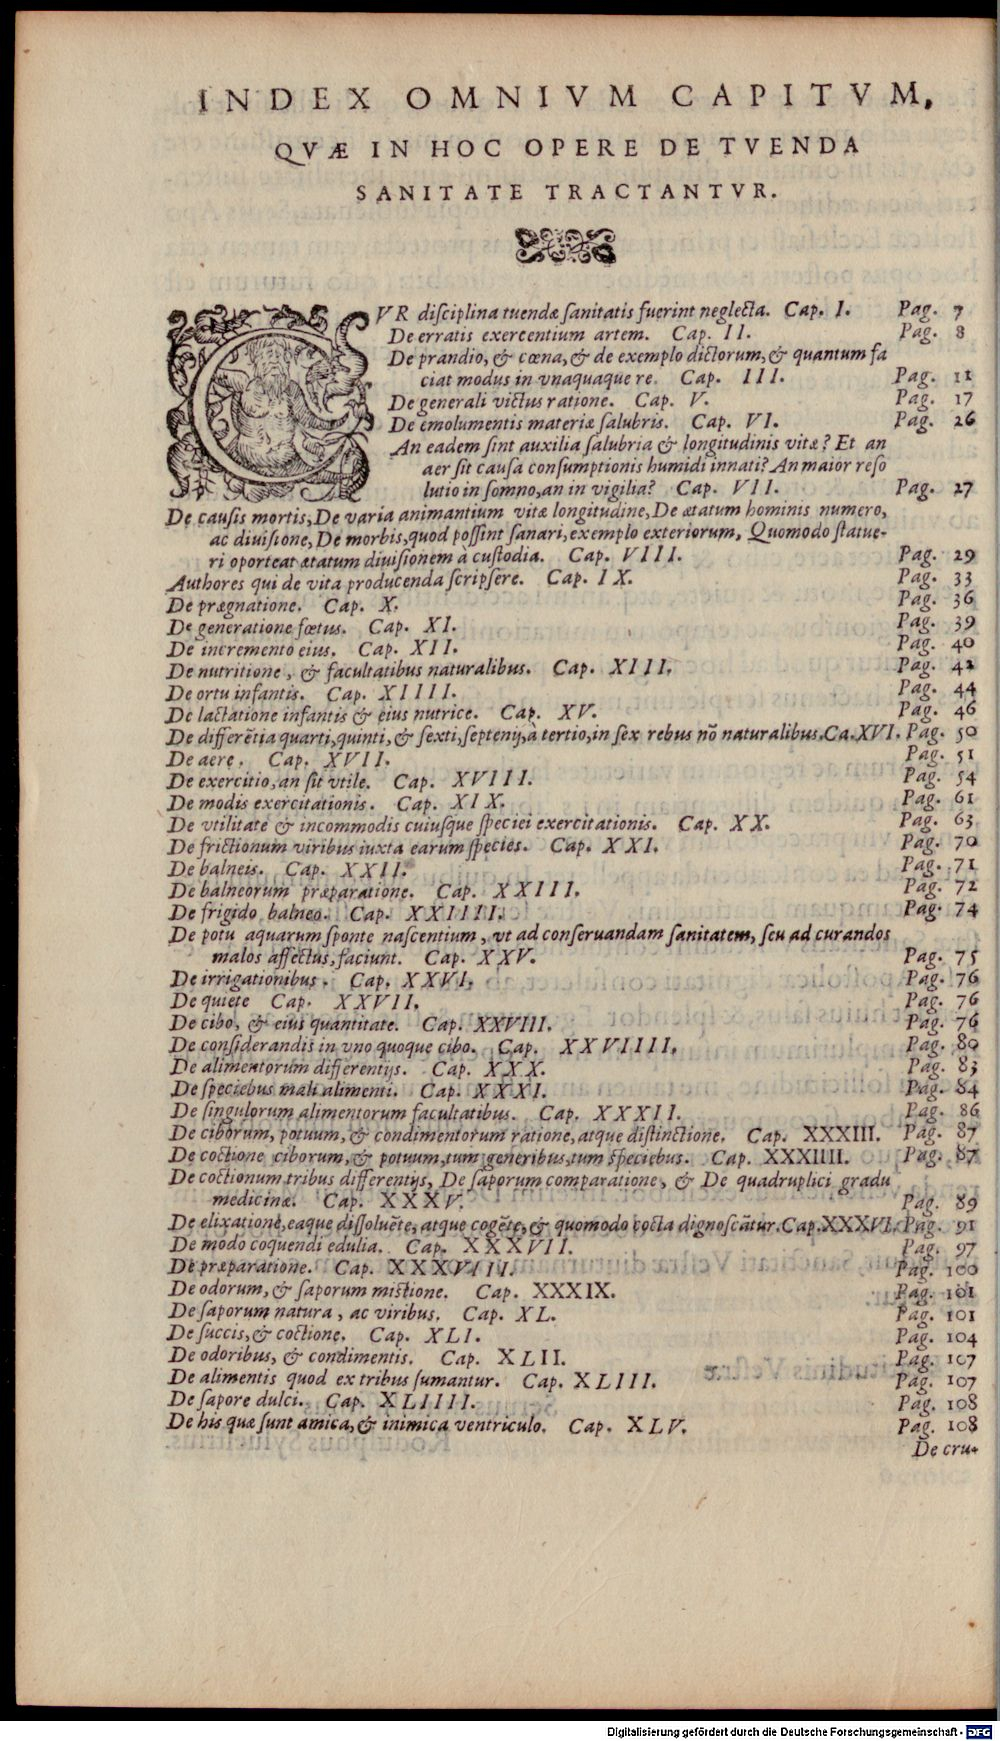 INDEX OMNIVM CAPITVM,
QVÆ IN HOC OPERE DE TVENDA
SANITATE TRACTANTVR.
CVR diſciplina tuendæ ſanitatis fuerint neglecta. Cap. I. Pag. 7
De erratis exercentium artem. Cap. II. Pag. 8
De prandio, & cœna, & de exemplo dictorum, & quantum fa
ciat modus in vnaquaque re. Cap. III. Pag. 11
De generali victus ratione. Cap. V. Pag. 17
De emolumentis materiæ ſalubris. Cap. VI. Pag. 26
An eadem ſint auxilia ſalubria & longitudinis vitæ? Et an
aer ſit cauſa conſumptionis humidi innati? An maior reſo
lutio in ſomno, an in vigilia? Cap. VII. Pag. 27
De cauſis mortis, De varia animantium vitæ longitudine, De ætatum hominis numero,
ac diuiſione, De morbis, quod poſſint ſanari, exemplo exteriorum, Quomodo ſtatue-
ri oporteat ætatum diuiſionem à cuſtodia. Cap. VIII. Pag. 29
Authores qui de vita producenda ſcripſere. Cap. IX. Pag. 33
De prægnatione. Cap. X. Pag. 36
De generatione fœtus. Cap. XI. Pag. 39
De incremento eius. Cap. XII. Pag. 40
De nutritione, & facultatibus naturalibus. Cap. XIII. Pag. 42
De ortu infantis. Cap. XIIII. Pag. 44
De lactatione infantis & eius nutrice. Cap. XV. Pag. 46
De differētia quarti, quinti, & ſexti, ſeptenij, à tertio, in ſex rebus nō naturalibus. Ca. XVI. Pag. 50
De aere. Cap. XVII. Pag. 51
De exercitio, an ſit vtile. Cap. XVIII. Pag. 54
De modis exercitationis. Cap. XIX. Pag. 61
De vtilitate & incommodis cuiuſque ſpeciei exercitationis. Cap. XX. Pag. 63
De frictionum viribus iuxta earum ſpecies. Cap. XXI. Pag. 70
De balneis. Cap. XXII. Pag. 71
De balneorum præparatione. Cap. XXIII. Pag. 72
De frigido balneo. Cap. XXIIII. Pag. 74
De potu aquarum ſponte naſcentium, vt ad conſeruandam ſanitatem, ſeu ad curandos
malos affectus, faciunt. Cap. XXV. Pag. 75
De irrigationibus. Cap. XXVI. Pag. 76
De quiete Cap. XXVII. Pag. 76
De cibo, & eius quantitate. Cap. XXVIII. Pag. 76
De conſiderandis in vno quoque cibo. Cap. XXVIIII. Pag. 80
De alimentorum differentijs. Cap. XXX. Pag. 83
De ſpeciebus mali alimenti. Cap. XXXI. Pag. 84
De ſingulorum alimentorum facultatibus. Cap. XXXII. Pag. 86
De ciborum, potuum, & condimentorum ratione, atque diſtinctione. Cap. XXXIII. Pag. 87
De coctione ciborum, & potuum, tum generibus, tum ſpeciebus. Cap. XXXIIII. Pag. 87
De coctionum tribus differentijs, De ſaporum comparatione, & De quadruplici gradu
medicinæ. Cap. XXXV. Pag. 89
De elixatione, eaque diſſoluēte, atque cogēte, & quomodo cocta dignoſcātur. Cap. XXXVI. Pag. 91
De modo coquendi edulia. Cap. XXXVII. Pag. 97
De præparatione. Cap. XXXVIII. Pag. 100
De odorum, & ſaporum miſtione. Cap. XXXIX. Pag. 101
De ſaporum natura, ac viribus. Cap. XL. Pag. 101
De ſuccis, & coctione. Cap. XLI. Pag. 104
De odoribus, & condimentis. Cap. XLII. Pag. 107
De alimentis quod ex tribus ſumantur. Cap. XLIII. Pag. 107
De ſapore dulci. Cap. XLIIII. Pag. 108
De his quæ ſunt amica, & inimica ventriculo. Cap. XLV. Pag. 108
De cru-
Digitalisierung gefördert durch die Deutsche Forschungsgemeinschaft - DFG